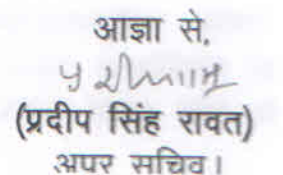 आज्ञा से,
(प्रदीप सिंह रावत)
अपर सचिव।